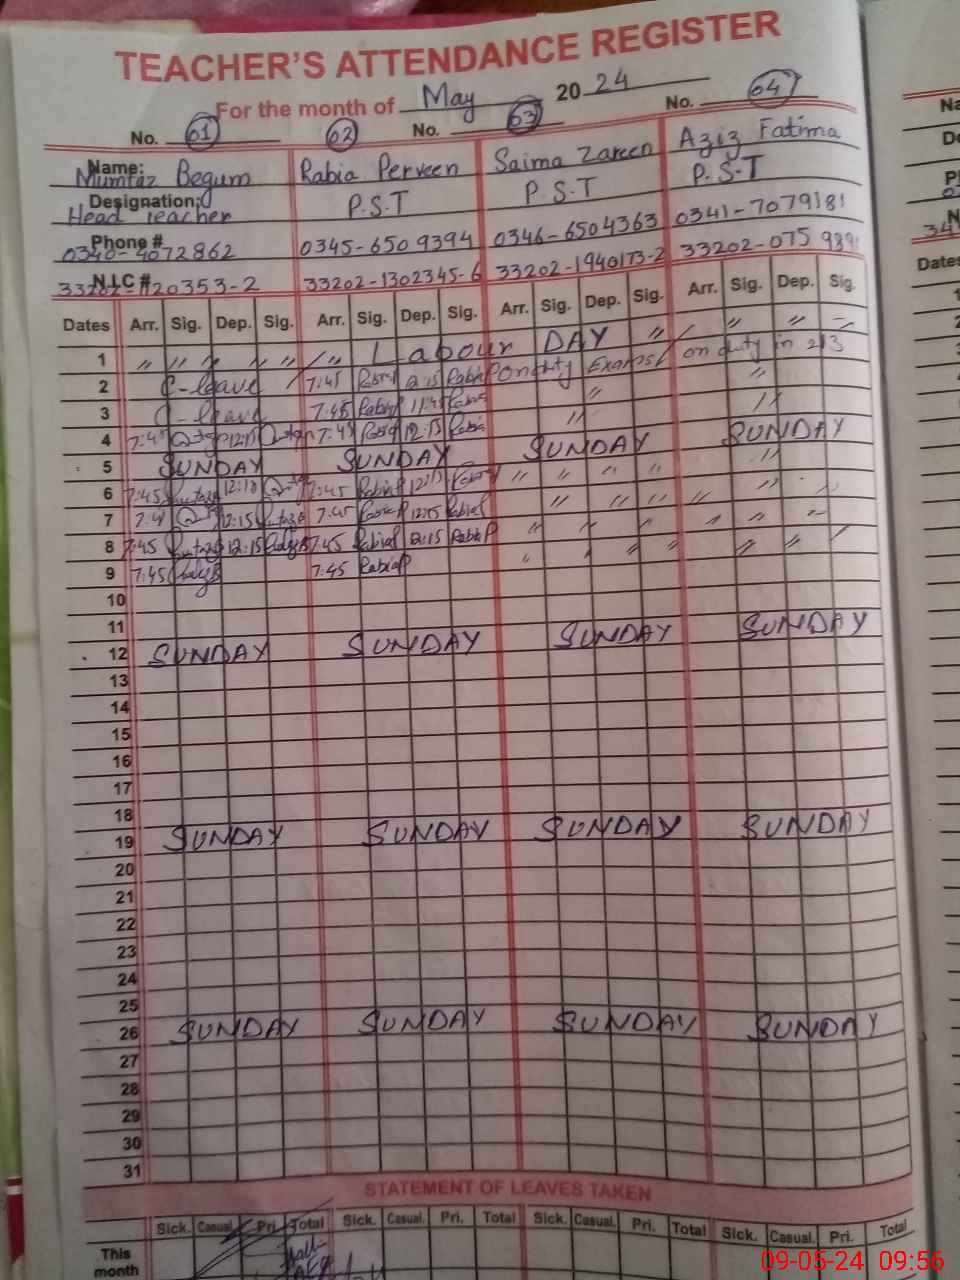 TEACHER'S ATTENDANCE REGISTER
For the month of May 2024
No. 01 02 No. 03 No. 04
Name: Mumtaz Begum Rabia Perveen Saima Zareen Aziz Fatima
Designation: Head Teacher P.S.T P.S.T P.S.T
Phone # 0340-4072862 0345-6509394 0346-6504363 0341-7079181
N.I.C # 33202-1302345-6 33202-1940173-2
Dates Arr. Sig. Dep. Sig. Arr. Sig. Dep. Sig. Arr. Sig. Dep. Sig. Arr. Sig. Dep. Sig.
1 " " " " " " " Labour DAY " " " "
2 C-leave 7:45 Rabia P 12:15 Rabia P On duty Exams on duty in 213
3 C-leave 7:45 Rabia P 11:45 Rabia " "
4 7:45 12:15 7:45 Rabia 12:15 Rabia " "
5 SUNDAY SUNDAY SUNDAY SUNDAY
6 7:45 Mumtaz 12:10 7:45 Rabia P 12:15 " " " " "
7 7:45 12:15 Mumtaz 7:45 Rabia P 12:15 Rabia P " " " " " "
8 7:45 Mumtaz 12:15 Mumtaz 7:45 Rabia P 12:15 Rabia P " " " " " "
9 7:45 Mumtaz 7:45 Rabia P " " " " " "
10
11
12 SUNDAY SUNDAY SUNDAY SUNDAY
13
14
15
16
17
18
19 SUNDAY SUNDAY SUNDAY SUNDAY
20
21
22
23
24
25
26 SUNDAY SUNDAY SUNDAY SUNDAY
27
28
29
30
31
STATEMENT OF LEAVES TAKEN
Sick. Casual. Pri. Total Sick. Casual. Pri. Total Sick. Casual. Pri. Total Sick. Casual. Pri. Total
This month
09-05-24 09:56